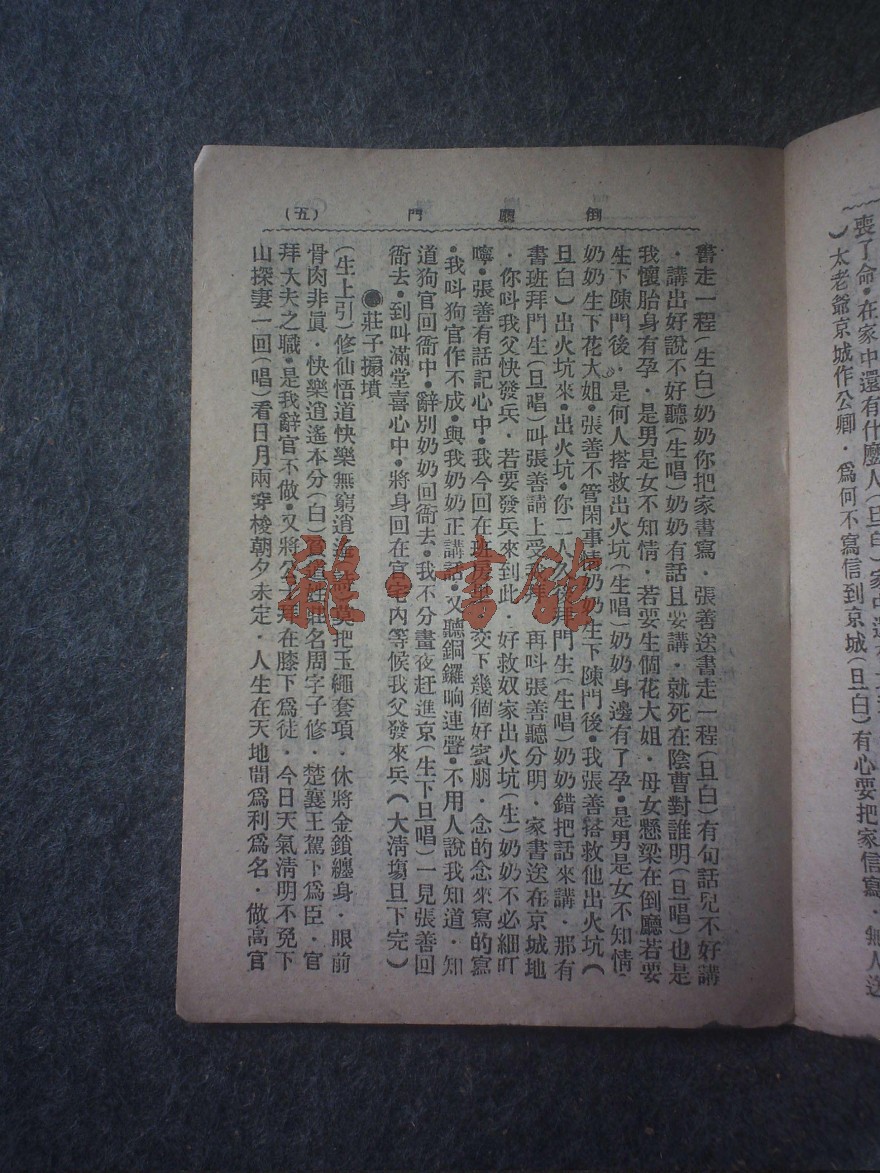 喪了命•在家中還有什麼人(旦白)家中還有
)太老爺京城作公卿•爲何不寫信到京城(旦白)有心要把家信寫•無人送
倒廳門 (五)
書走一程(生白)奶奶你把家書寫•張善送書走一程(旦白)有句話兒不好講
•講出好說不好聽(生唱)奶奶有話且要講•就死在陰曹對誰明(旦唱)也是
我懷胎身有孕•是男是女不知情•若要生個花大姐•母女懸梁在倒廳若要
生下陳門後•是何人搭救出火坑(生唱)奶奶身邊有了孕•是男是女不知情•
奶奶生下花大姐•張善不管閑事情奶奶生下陳門後•我張善搭救他出火坑(
旦白)出火坑來•出火坑•你二人久後拜門生(生唱)奶奶錯把話來講•那有
書班拜門生(旦唱)叫張善請上受我拜•再呌張善聽分明•家書送在京城地
•你呌我父快發兵•若要發兵來到此•好救奴家出火坑(生)奶奶不必細叮
嚀•張善有話記心中•我今回在班房地•交下幾個好賓朋•念的念來寫的寫
•我呌狗官作不成•與我奶奶正講話•又聽銅鑼晌連聲•不用人說我知道•知
道狗官回衙中•辭別奶奶回衙去•我不分晝夜赶進京(生下旦唱)一見張善回
衙去•到叫滿堂喜心中•將身回在官宅內等候我父發來兵(大淸塲旦下完)
●莊子搧墳
(生上引)修仙悟道快樂無窮逍遙(詩)莫把玉繩套項•休將金鎖纏身•眼前
骨肉非眞•快樂逍遙本分(白)貧道姓莊名周字子修•楚襄王駕下爲臣•官
拜大夫之職•是我辭官不做•又將公子拜在膝下爲徒•今日天氣清明不免下
山探妻一回(唱)看日月兩穿梭朝夕未定•人生在天地間爲利爲名•做高官
雜•書館